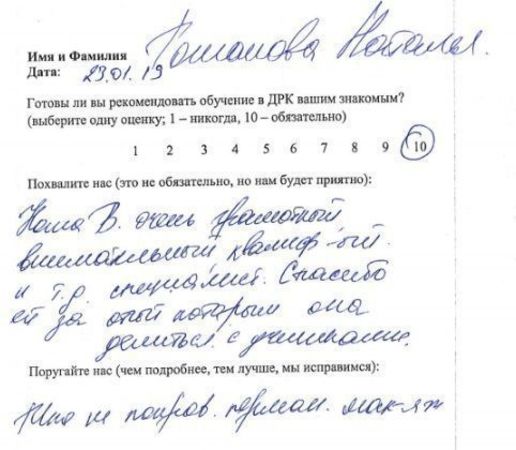 Имя и Фамилия Наталья.
Дата: 29.01.19
Готовы ли вы рекомендовать обучение в ДРК вашим знакомым?
(выберите одну оценку; 1 – никогда, 10 – обязательно)
1 2 3 4 5 6 7 8 9 10
Похвалите нас (это не обязательно, но нам будет приятно):
В. очень грамотный
внимательный квалиф-ый.
и т.д. специалист. Спасибо
ей за опыт которым она
делиться с учениками.
Поругайте нас (чем подробнее, тем лучше, мы исправимся):
не понрав. перман. мак-яж